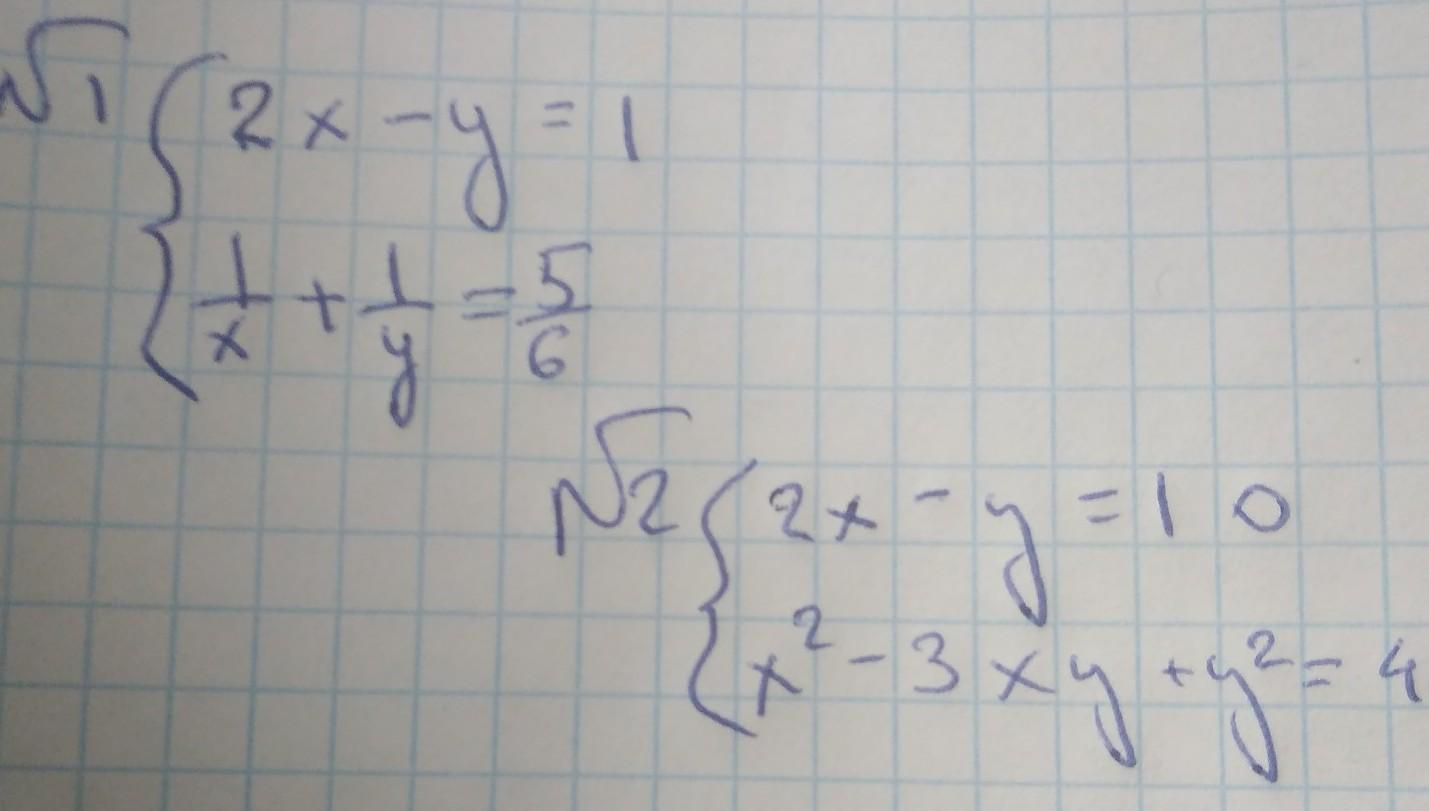 √1 { 2x - y = 1
1/x + 1/y = 5/6
√2 { 2x - y = 10
x² - 3xy + y² = 4